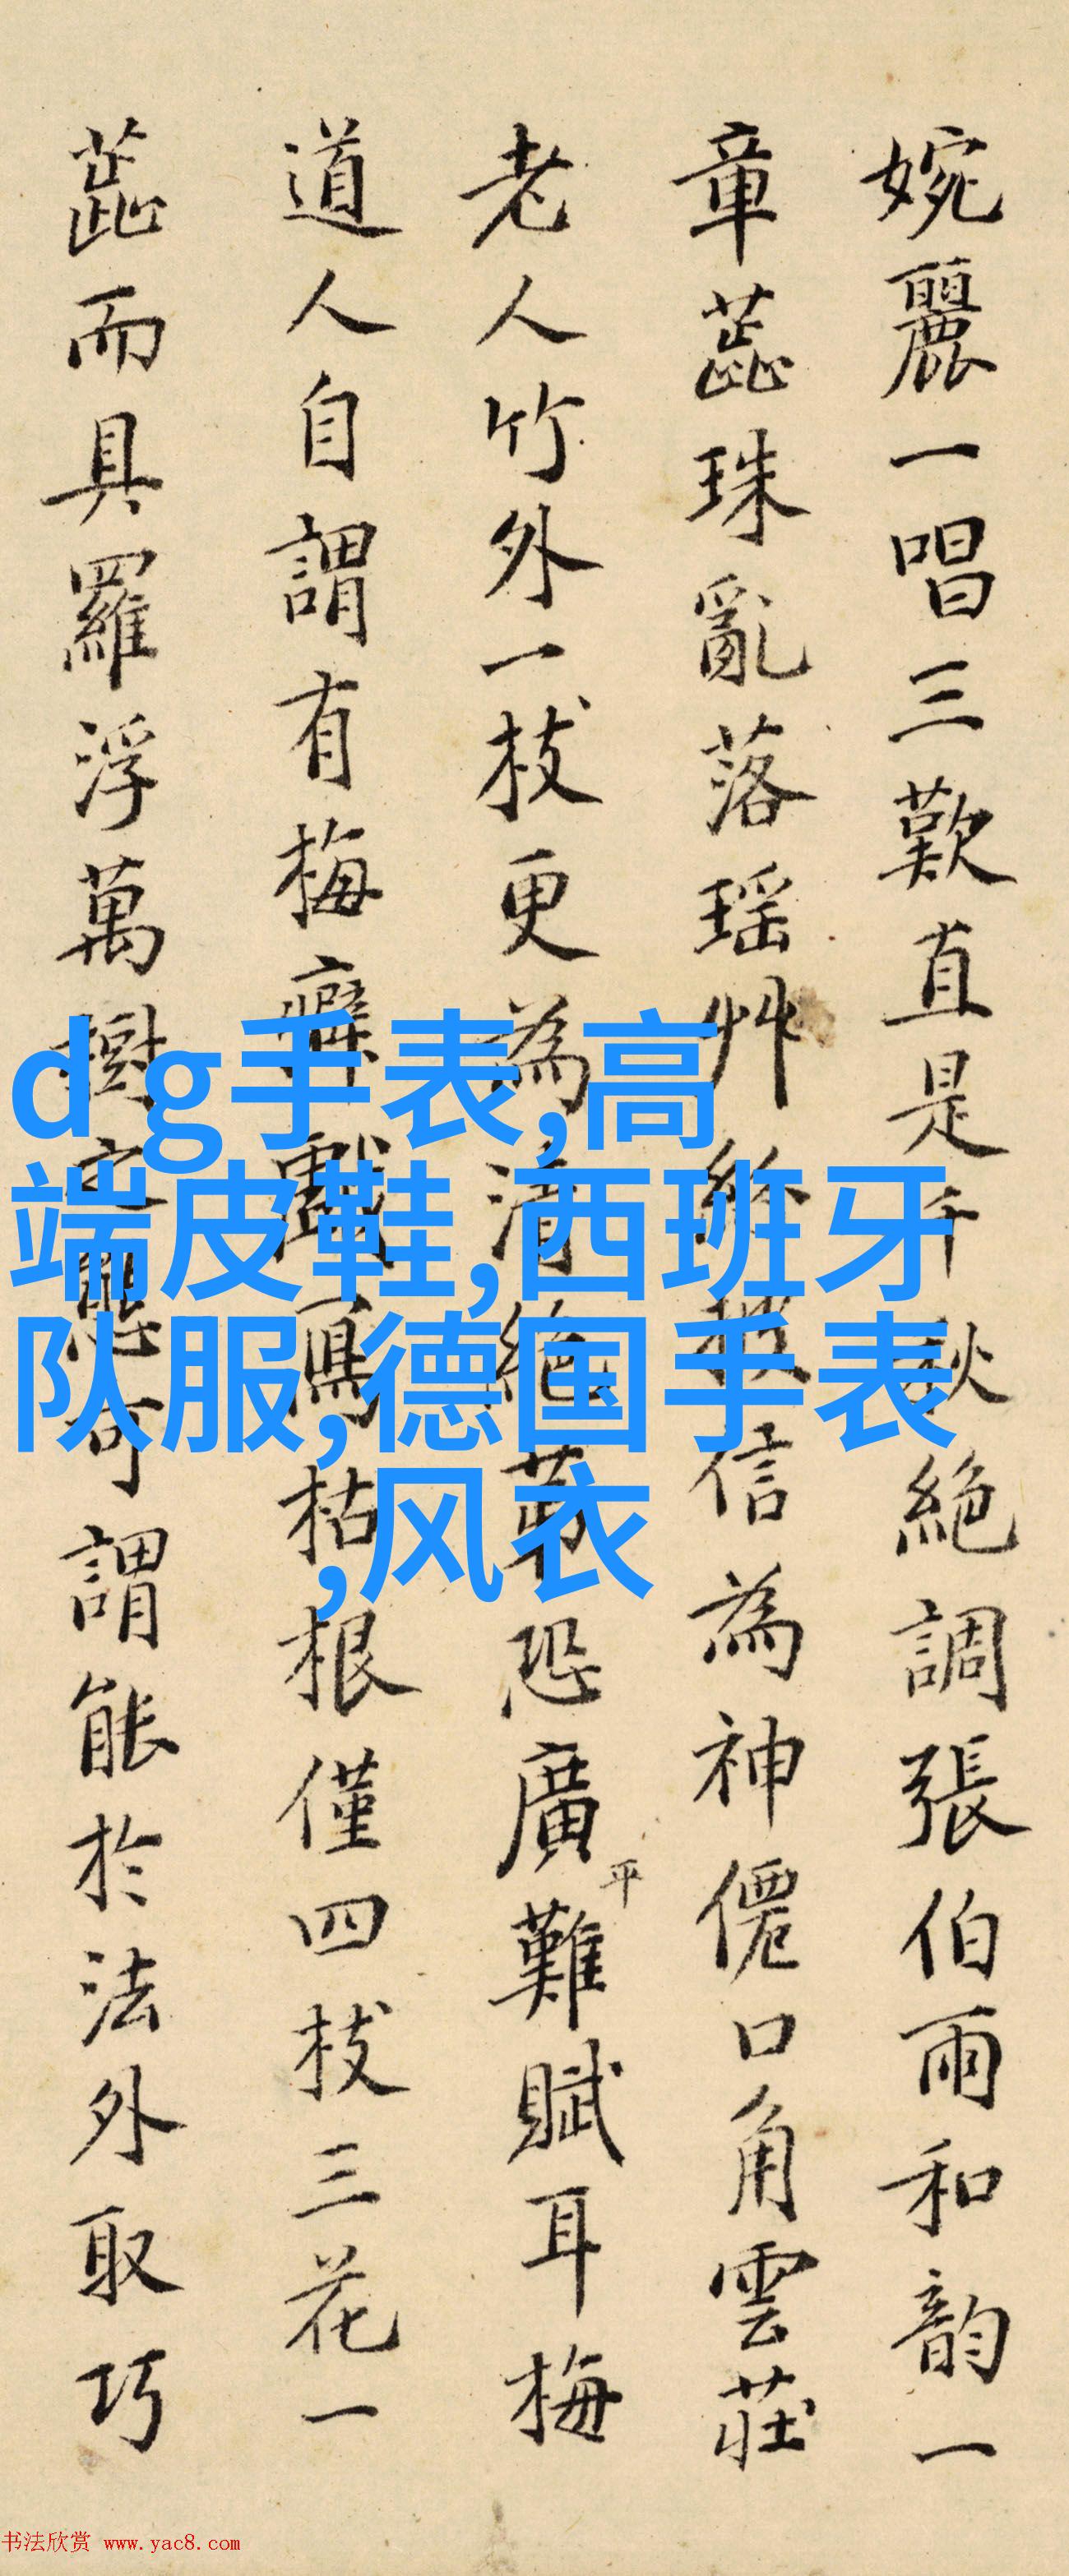 婉麗一唱三歎直是千秋絕調張伯雨和韵一
章蕋珠亂落瑶艸紛披信為神僊口角雲莊
老人竹外一枝更為清絕苐恐廣平難賦耳梅
道人自謂有梅癖戲寫枯根僅四枝三花一
蕋而具羅浮萬樹之態可謂能於法外取巧
d g手表,高
端皮鞋,西班牙
队服,德国手表
,风衣
书法欣赏 www.yac8.com